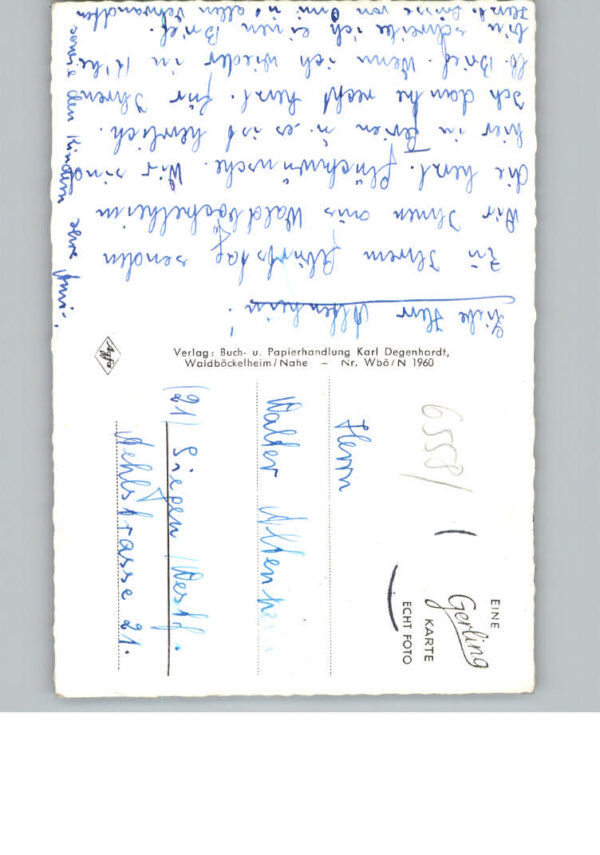 Liebe Herr Altenhein!
Zu Ihrem Geburtstag senden
Wir Ihnen aus Waldböckelheim
die herzl. Glückwünsche. Wir sind
hier in Ferien u. es ist herrlich.
Ich danke recht herzl. für Ihren
lb. Brief. Wenn ich wieder in K'he
bin schreibe ich einen Brief.
Herzl. Grüsse von Omi u. allen Verwandten
sowie den Kindern Ihre
Agfa
Verlag: Buch- u. Papierhandlung Karl Degenhardt,
Waldböckelheim/Nahe – Nr. Wbö/N 1960
6558/
EINE
Gerling
KARTE
ECHT FOTO
Herrn
Walter Altenhein
(21) Siegen /Westf.
21.